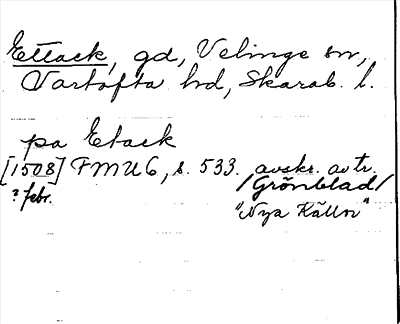 Ettack, gd, Velinge sn,
Vartofta hd, Skarab. l.
på Etack
[1508] FMU 6, s. 533. avskr. av tr.
? febr. /Grönblad/
"Nya Källor"